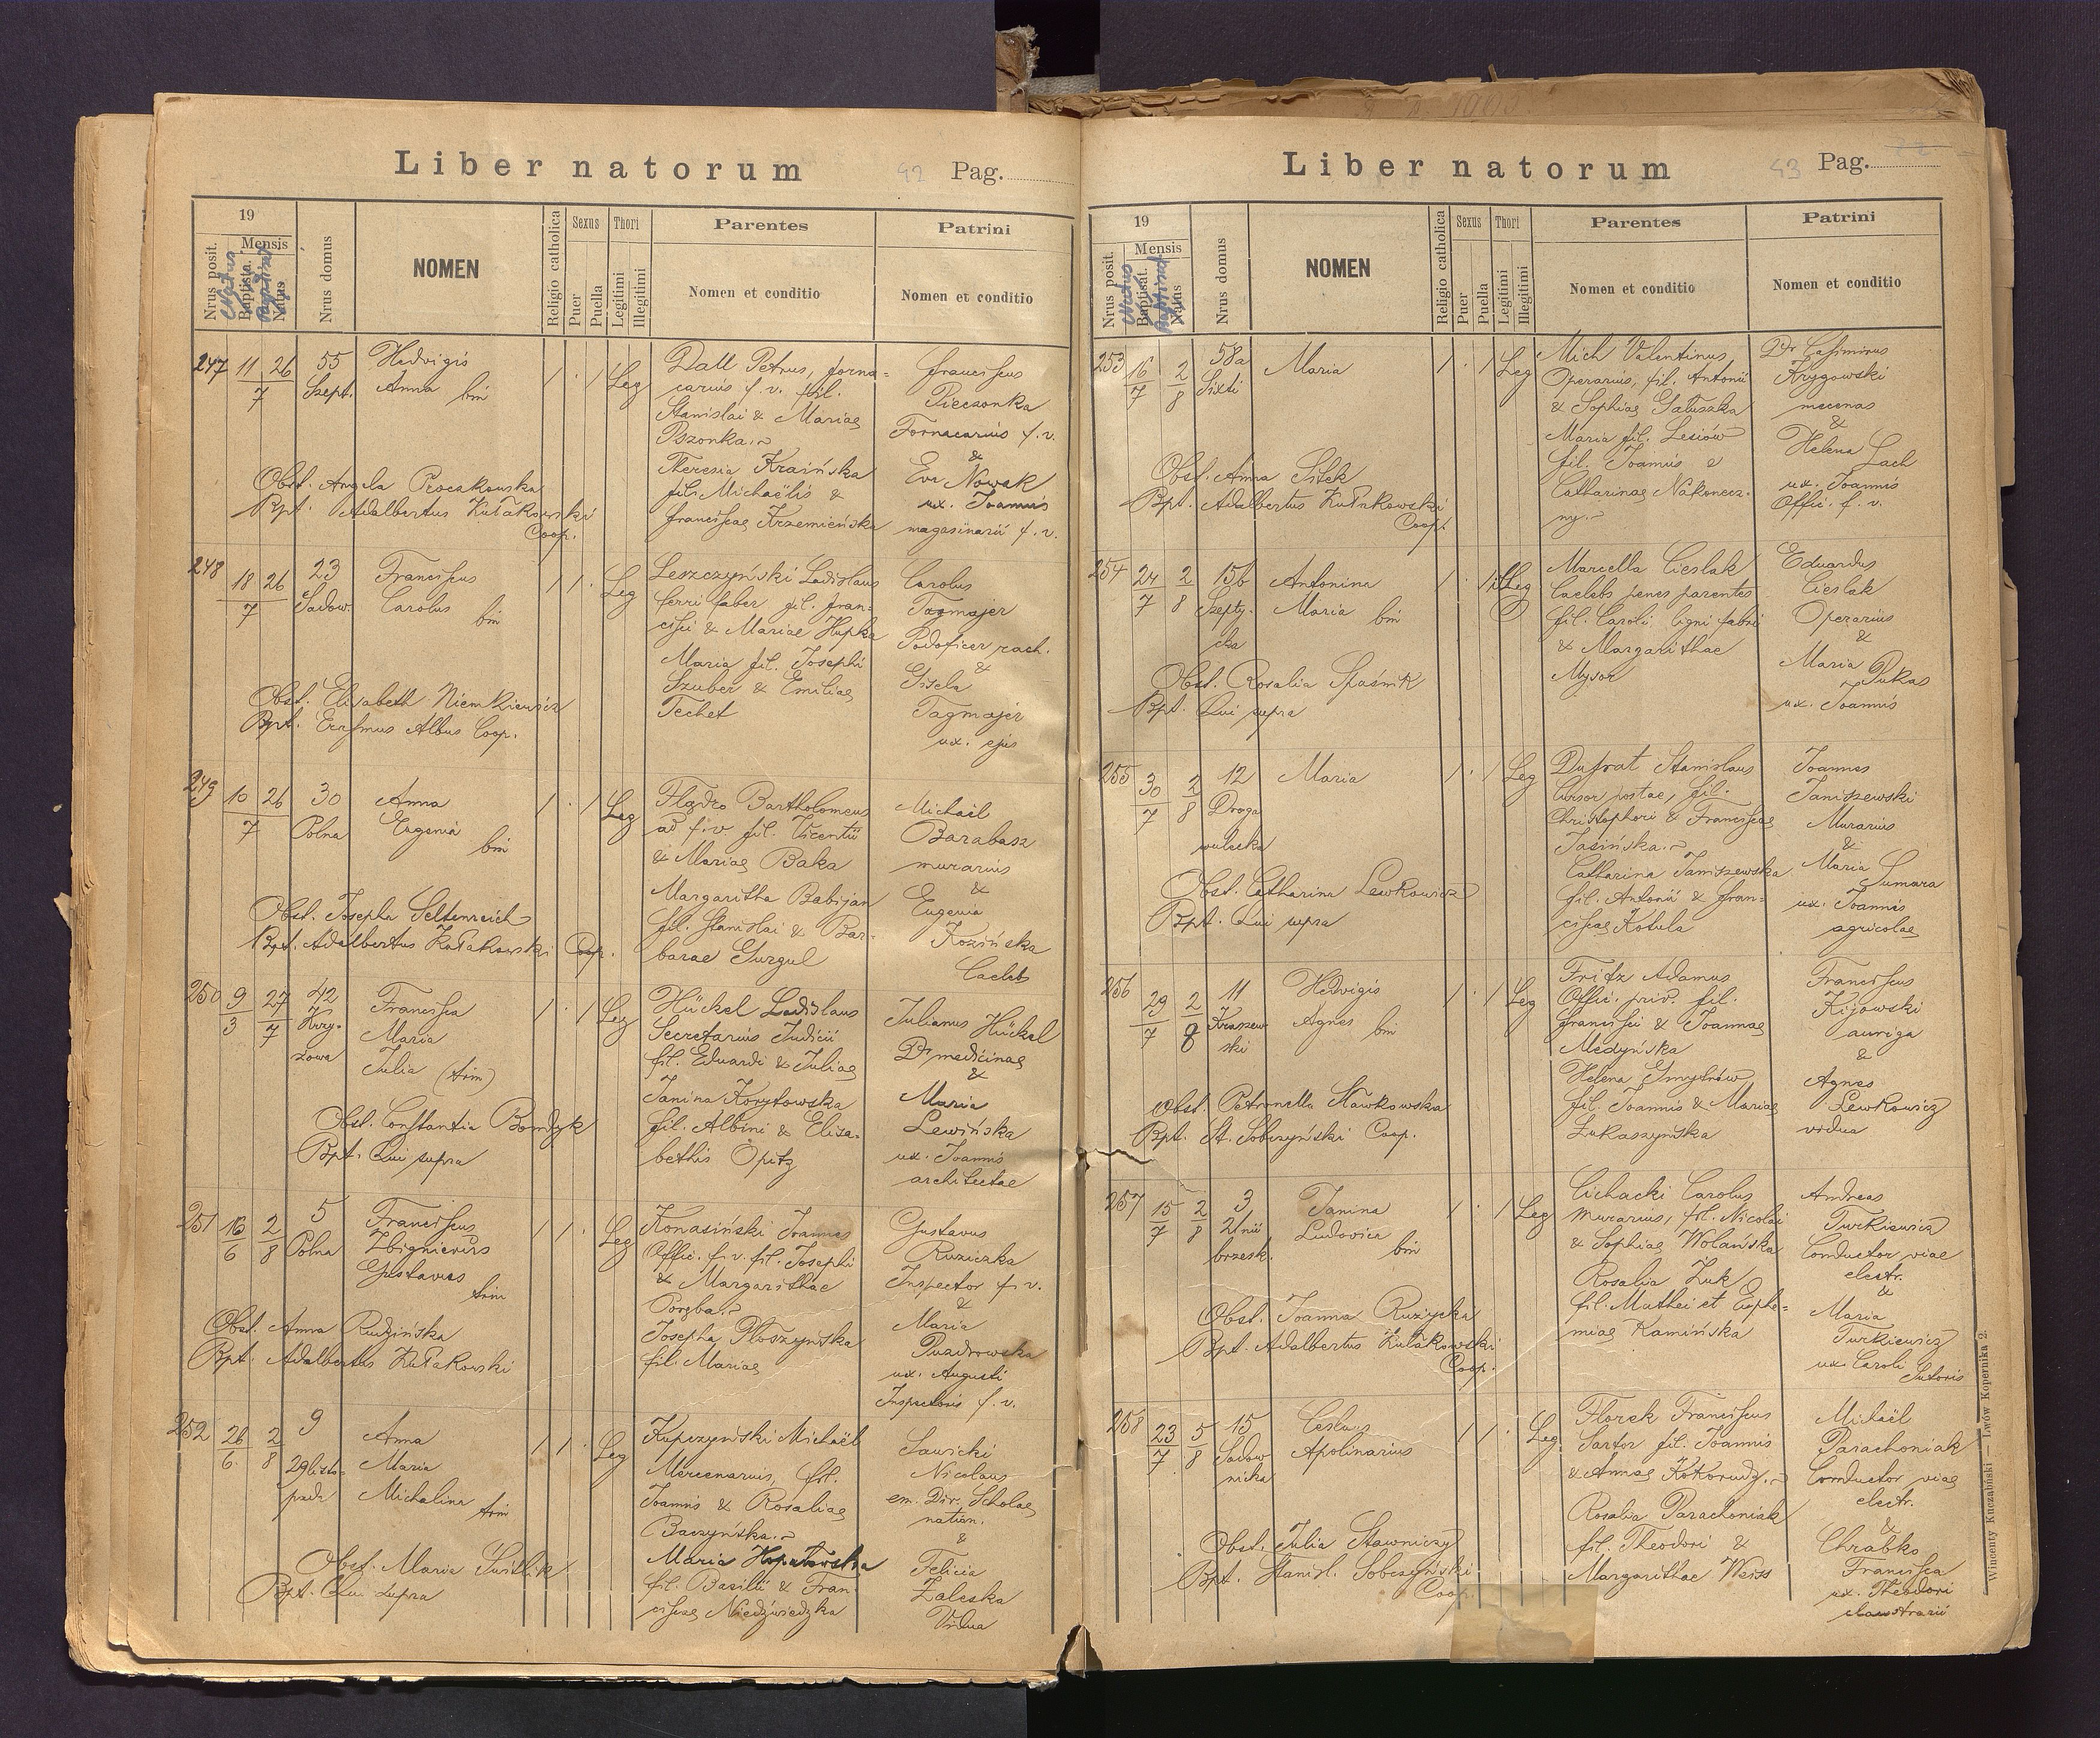 Liber natorum 42 Pag.
19
Mensis
Nrus posit.
Natus
Baptisat.
Baptisat
Natus
Nrus domus
NOMEN
Religio catholica
Sexus
Puer
Puella
Thori
Legitimi
Illegitimi
Parentes
Nomen et conditio
Patrini
Nomen et conditio
247 11 26 55 Hedvigis / · / Leg Dall Petrus, forna= Franciscus
7 Szept. Anna bin carius f. v. fil. Pieczonka
Stanislai & Mariae Fornacarius f. v.
Pszonka. &
Theresia Kraińska Eva Nowak
Obst. Angela Procakowska fil. Michaëlis & ux. Joannis
Bpt. Adalbertus Kułakowski Coop. Franciscae Krzemieńska magasinarii f. v.
248 18 26 23 Franciscus / / · Leg Leszczyński Ladislaus Carolus
7 Sadow. Carolus bin ferri faber fil. Fran= Tagmajer
cisci & Mariae Hupka Podoficer rach.
Maria fil. Josephi &
Szuber & Emiliae Gisela
Obst. Elisabeth Niemkiewicz Techet Tagmajer
Bpt. Erasmus Albus Coop. ux. ejus
249 10 26 30 Anna / · / Leg Bartholomeus Michaël
7 Polna Eugenia bin ad f. v. fil. Vicentii Barabasz
& Mariae Baka murarius
Margaritha Babijan &
Obst. Josepha Seltenreich fil. Stanislai & Bar- Eugenia
Bpt. Adalbertus Kułakowski Coop. barae Gurgul Kozińska
Caelebs
250 9 27 42 Francisca / · / Leg Hückel Ladislaus Julianus Hückel
3 7 Krzy- Maria Secretarius Judicii Dr medicinae
żowa Julia (trin) fil. Eduardi & Juliae &
Janina Korytowska Maria
Obst. Constantia Bomdyk fil. Albini & Elisa- Lewińska
Bpt. Qui supra bethis Opitz ux. Joannis
architectae
251 16 2 5 Franciscus / / · Leg Konasiński Joannes Gustavus
6 8 Polna Zbignievus Offic. f. v. fil. Josephi Ruziczka
Gustavus trin & Margarithae Inspector f. v.
Poręba. &
Obst. Anna Rudzińska Josepha Płoszyńska Maria
Bpt. Adalbertus Kułakowski fil. Mariae
ux. Augusti
Inspectoris f. v.
252 26 2 9 Anna / / · Leg Kupczyński Michaël Sawicki
6 8 29 listo- Maria Mercenarius, fil. Nicolaus
pada Michalina trin Joannis & Rosaliae em. Dir. Scholae
Baczyńska. nation.
&
Obst. Maria Maria Felicia
Bpt. Qui supra fil. Basilii & Fran- Zaleska
ciscae Niedźwiedzka Vidua
Liber natorum 43 Pag.
19
Mensis
Nrus posit.
Natus
Baptisat.
Baptisat
Natus
Nrus domus
NOMEN
Religio catholica
Sexus
Puer
Puella
Thori
Legitimi
Illegitimi
Parentes
Nomen et conditio
Patrini
Nomen et conditio
253 16 2 58a Maria / · / Leg Mich Valentinus, Dr Casimirus
7 8 Sixti Operarius, fil. Antonii Krygowski
& Sophiae Gałuszka mecenas
Maria fil. Lesiów &
Obst. Anna Sitek fil. Joannis & Helena Lach
Bpt. Adalbertus Kułakowski Coop. Catharinae Nakonecz- ux. Joannis
ny. Offic. f. v.
254 24 2 15b Antonina / · / illeg Marcella Cieslak Eduardus
7 8 Szepty- Maria bin Caelebs penes parentes Cieslak
cka fil. Caroli ligni fabri Operarius
& Margarithae &
Obst. Rosalia Spaśnik Mysor Maria Pukas
Bpt. Qui supra ux. Joannis
255 30 2 12 Maria / · / Leg Dufrat Stanislaus Joannes
7 8 Droga Cursor postae, fil. Janiszewski
wulecka Christophori & Franciscae Murarius
Jasińska. &
Obst. Catharina Lewkowicz Catharina Janiszewska Maria Sumara
Bpt. Qui supra fil. Antonii & Fran= ux. Joannis
ciscae Kotula agricolae
256 29 2 11 Hedvigis / · / Leg Fritz Adamus Franciscus
7 8 Kraszew Agnes bin Offic. priv. fil. Kijowski
ski Francisci & Joannae auriga
Medyńska &
Helena Smytrów Agnes
Obst. Petronella Sławkowska fil. Joannis & Mariae Lewkowicz
Bpt. St. Sobczyński Coop. Łukaszyńska vidua
257 15 2 3 Janina / · / Leg Cichacki Carolus Andreas
7 8 Unii Ludovica bin murarius, fil. Nicolai Turkiewicz
brzesk. & Sophiae Wolańska Conductor viae
Rosalia Żuk electr.
fil. Mathei et Euphe= &
Obst. Joanna Ruzycki miae Kamińska Maria
Bpt. Adalbertus Kułakowski Coop. Turkiewicz
ux. Caroli
Sutoris
258 23 5 15 Ceslaus / / · Leg. Florek Franciscus Michaël
7 8 Sadow Apolinarius Sartor fil. Joannis Parachoniak
nicka & Annae Kokorudz. Conductor viae
Rosalia Parachoniak electr.
Obst. Julia Stawniczy fil. Theodori & &
Bpt. Stanisl. Sobczyński Coop. Margarithae Weiss Chrabko
Francisca
ux. Theodori
claustrarii
Wincenty Kuczabiński — Lwów Kopernika 2.